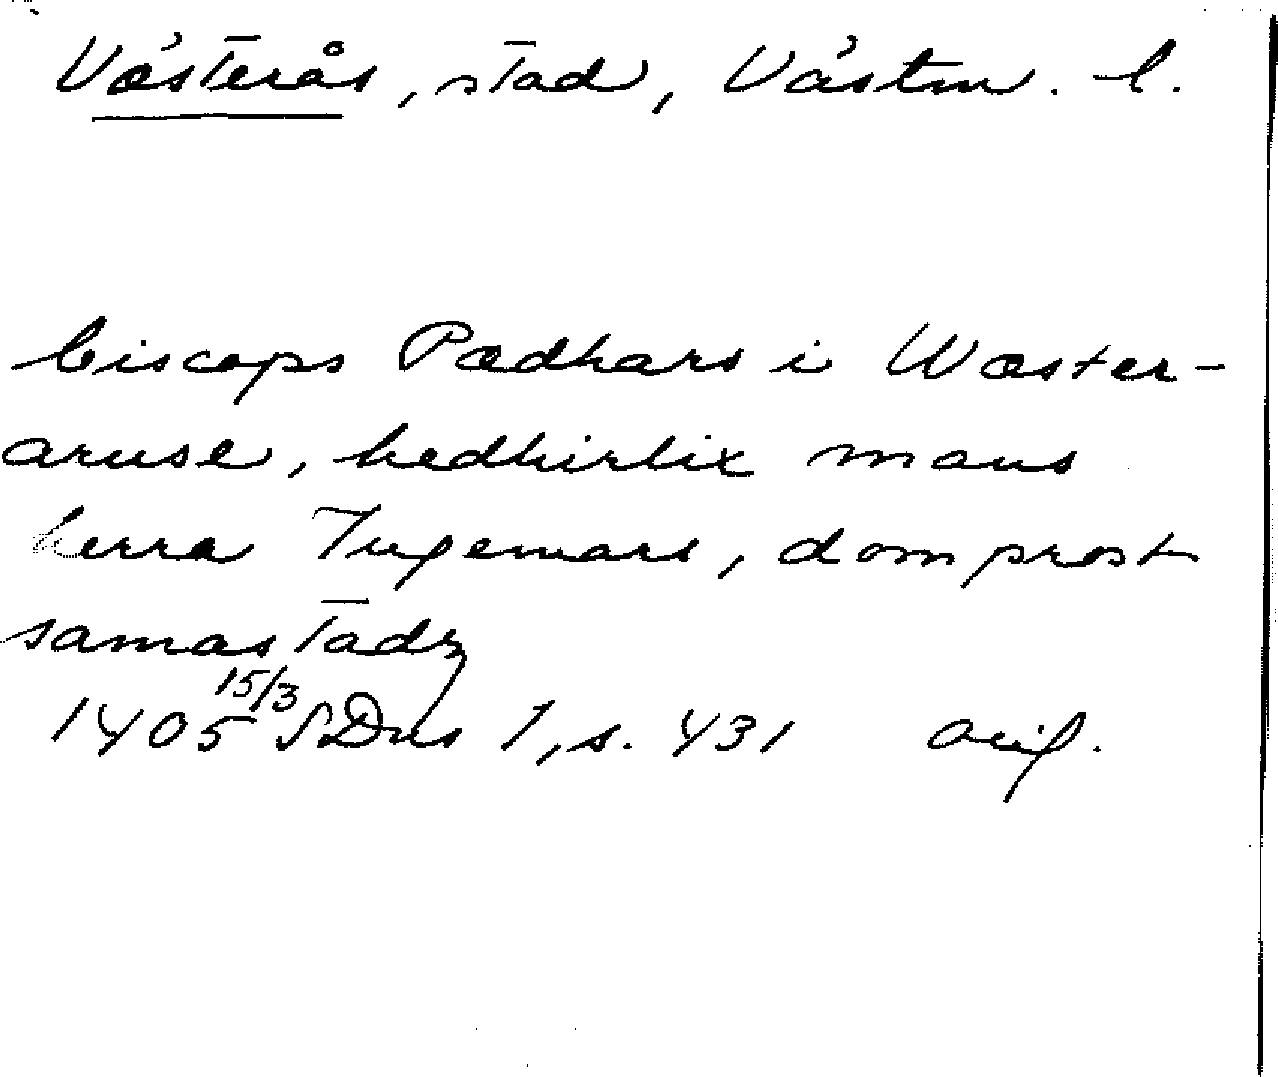 Västerås, stad, Västm. l.
biscops Pædhars i Wæster-
aruse, hedhirlix mans
herra Ingemars, domprost
samastadz
1405 15/3 SDns 1, s. 431 orig.